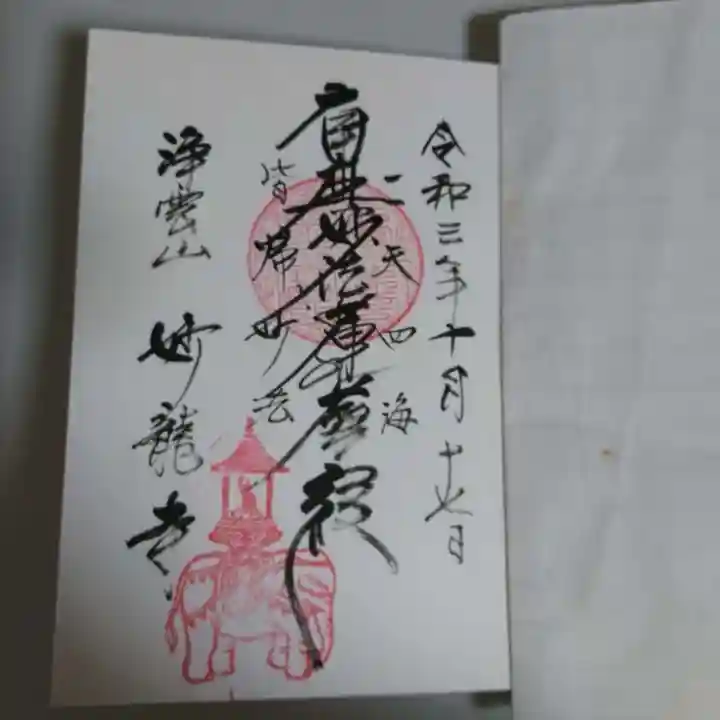 令和三年十月十七日
一天四海
南無妙法蓮華経
皆帰妙法
浄雲山 妙龍寺